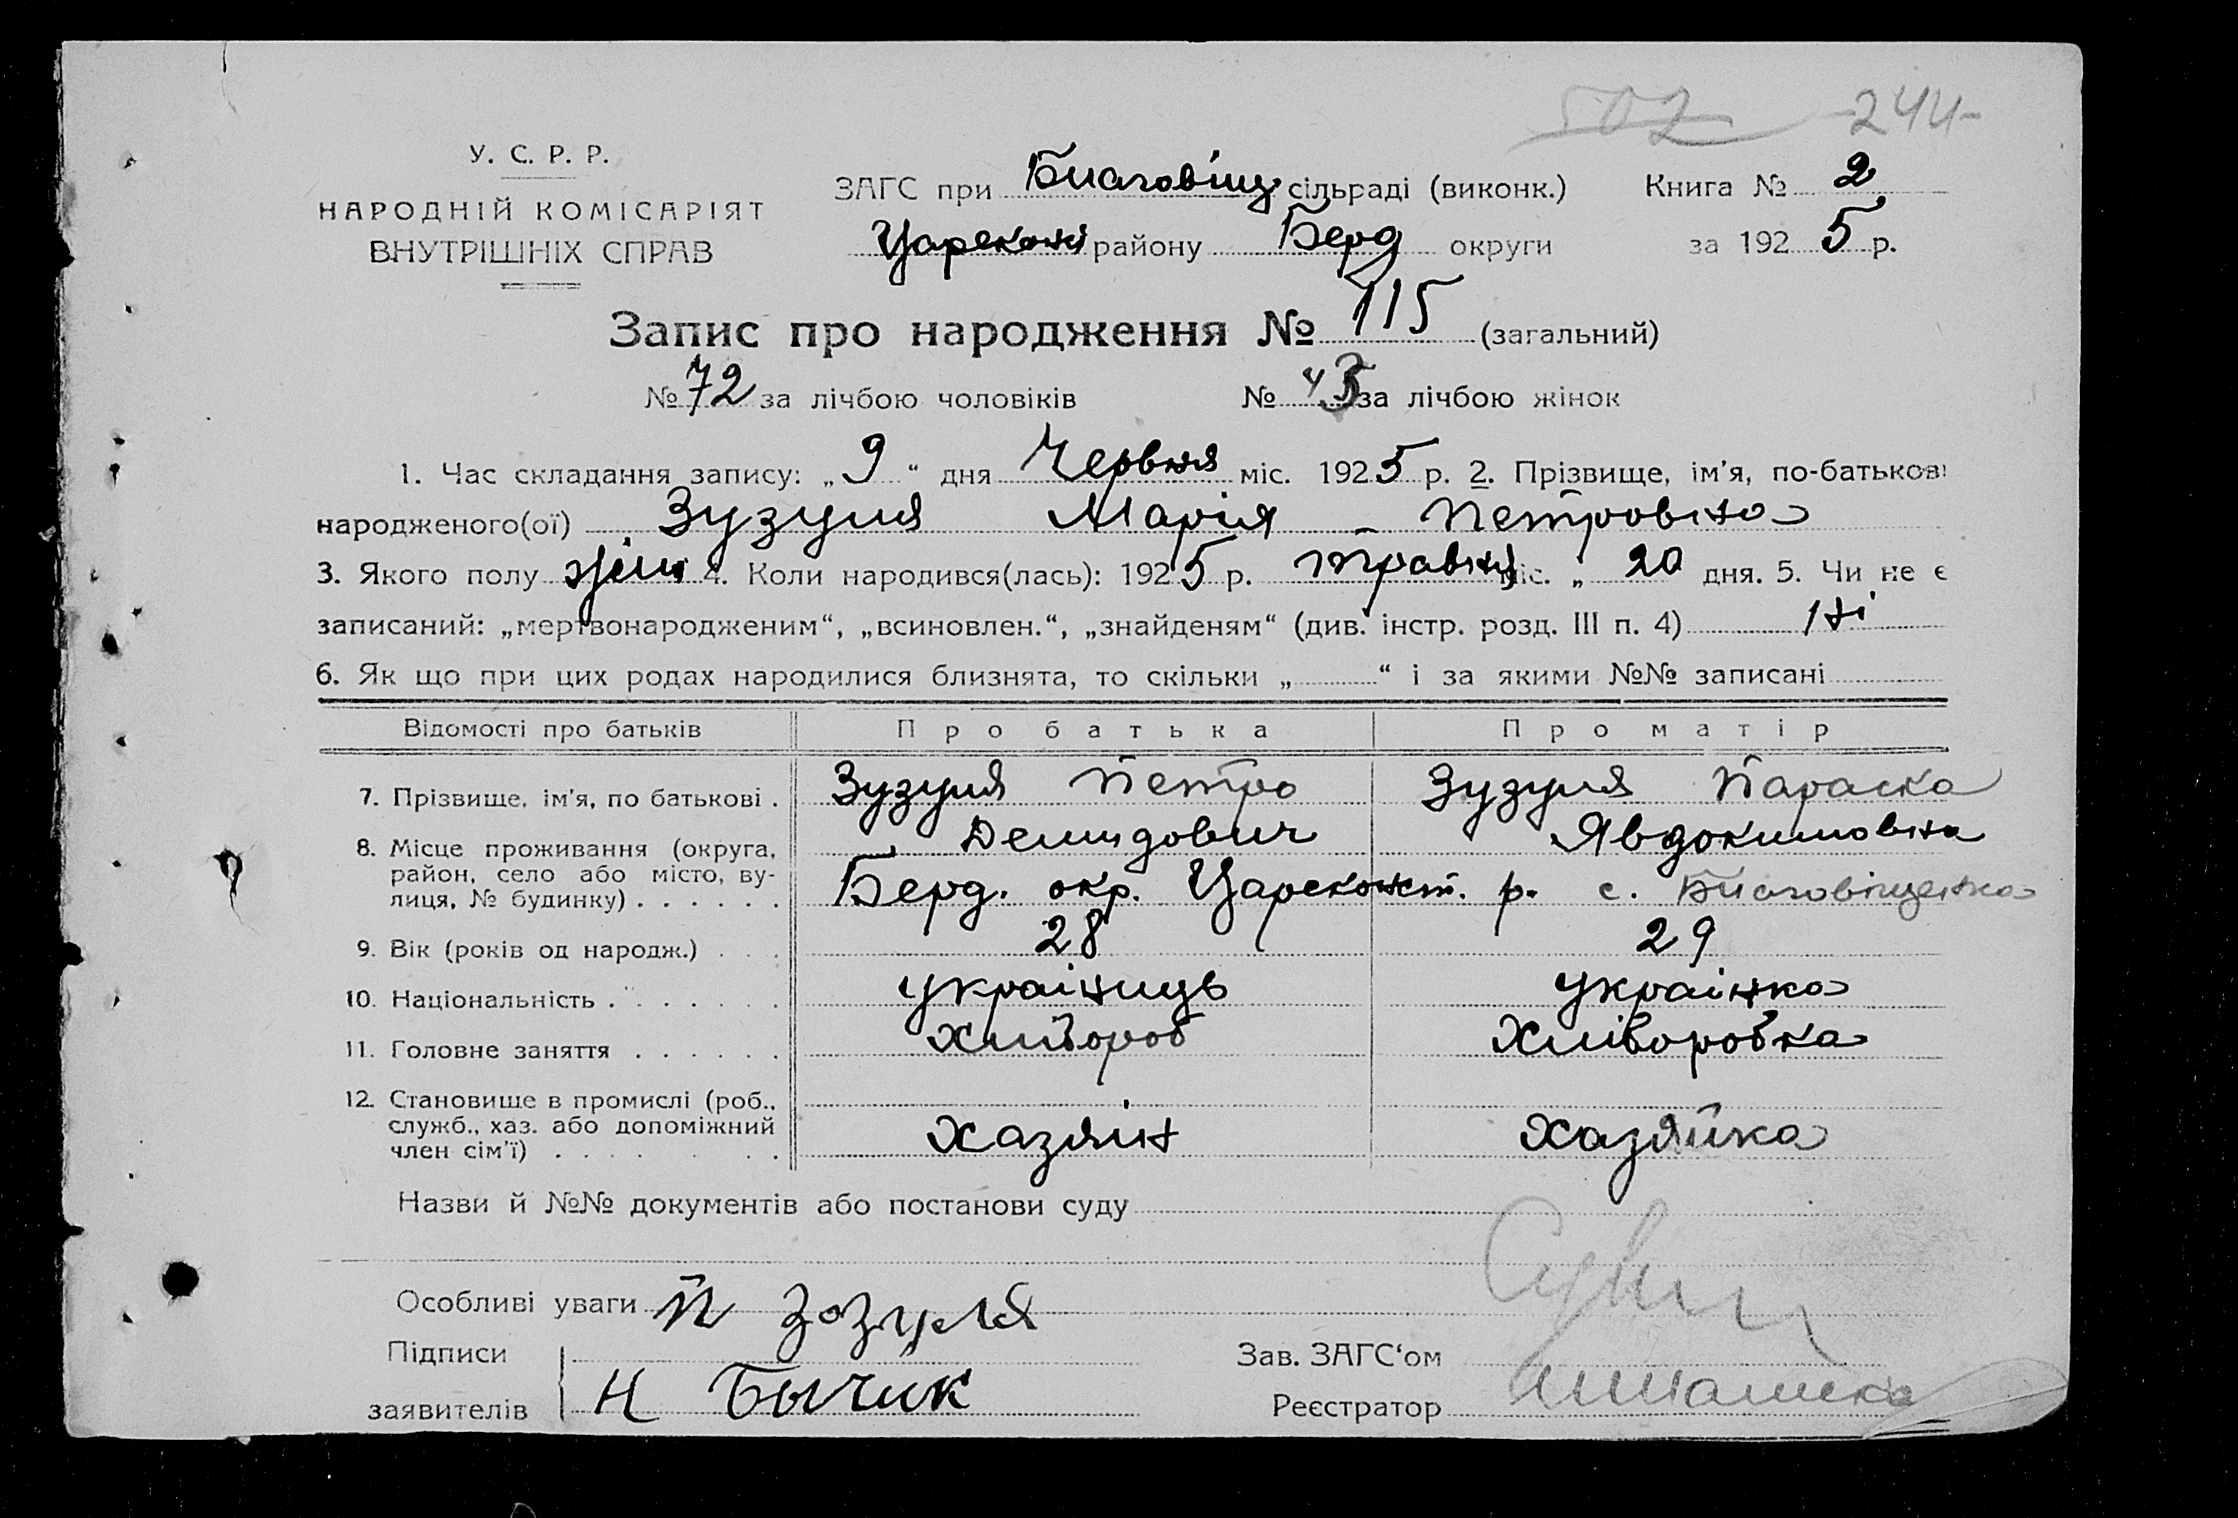 502 -244-
У. С. Р. Р.
НАРОДНІЙ КОМІСАРІЯТ
ВНУТРІШНІХ СПРАВ
ЗАГС при Благовіщ сільраді (виконк.) Книга № 2
Царекон району Берд округи за 1925 р.
Запис про народження № 115 (загальний)
№ 72 за лічбою чоловіків № 43 за лічбою жінок
1. Час складання запису: „9“ дня Червня міс. 1925 р. 2. Прізвище, ім'я, по-батькові
народженого(ої) Зузуля Марія - Петровна
3. Якого полу жін 4. Коли народився(лась): 1925 р. травня міс. „ 20 дня. 5. Чи не є
записаний: „мертвонародженим“, „всиновлен.“, „знайденям“ (див. інстр. розд. III п. 4) ні
6. Як що при цих родах народилися близнята, то скільки „ “ і за якими №№ записані
Відомості про батьків Про батька Про матір
7. Прізвище, ім'я, по батькові . Зузуля Петро Зузуля Параска
Демидович Явдокимовна
8. Місце проживання (округа,
район, село або місто, ву-
лиця, № будинку) . . . . . . Берд. окр. Цареконст. р. с. Благовіщенка
9. Вік (років од народж.) . . . 28 29
10. Національність . . . . . . . українць українка
11. Головне заняття . . . . . . Хлібороб Хліборобка
12. Становище в промислі (роб.,
служб., хаз. або допоміжний
член сім'ї) . . . . . . . Хазяїн Хазяйка
Назви й №№ документів або постанови суду
Особливі уваги П Зозуля
Підписи
заявителів Н Бычик
Зав. ЗАГС‘ом
Реєстратор